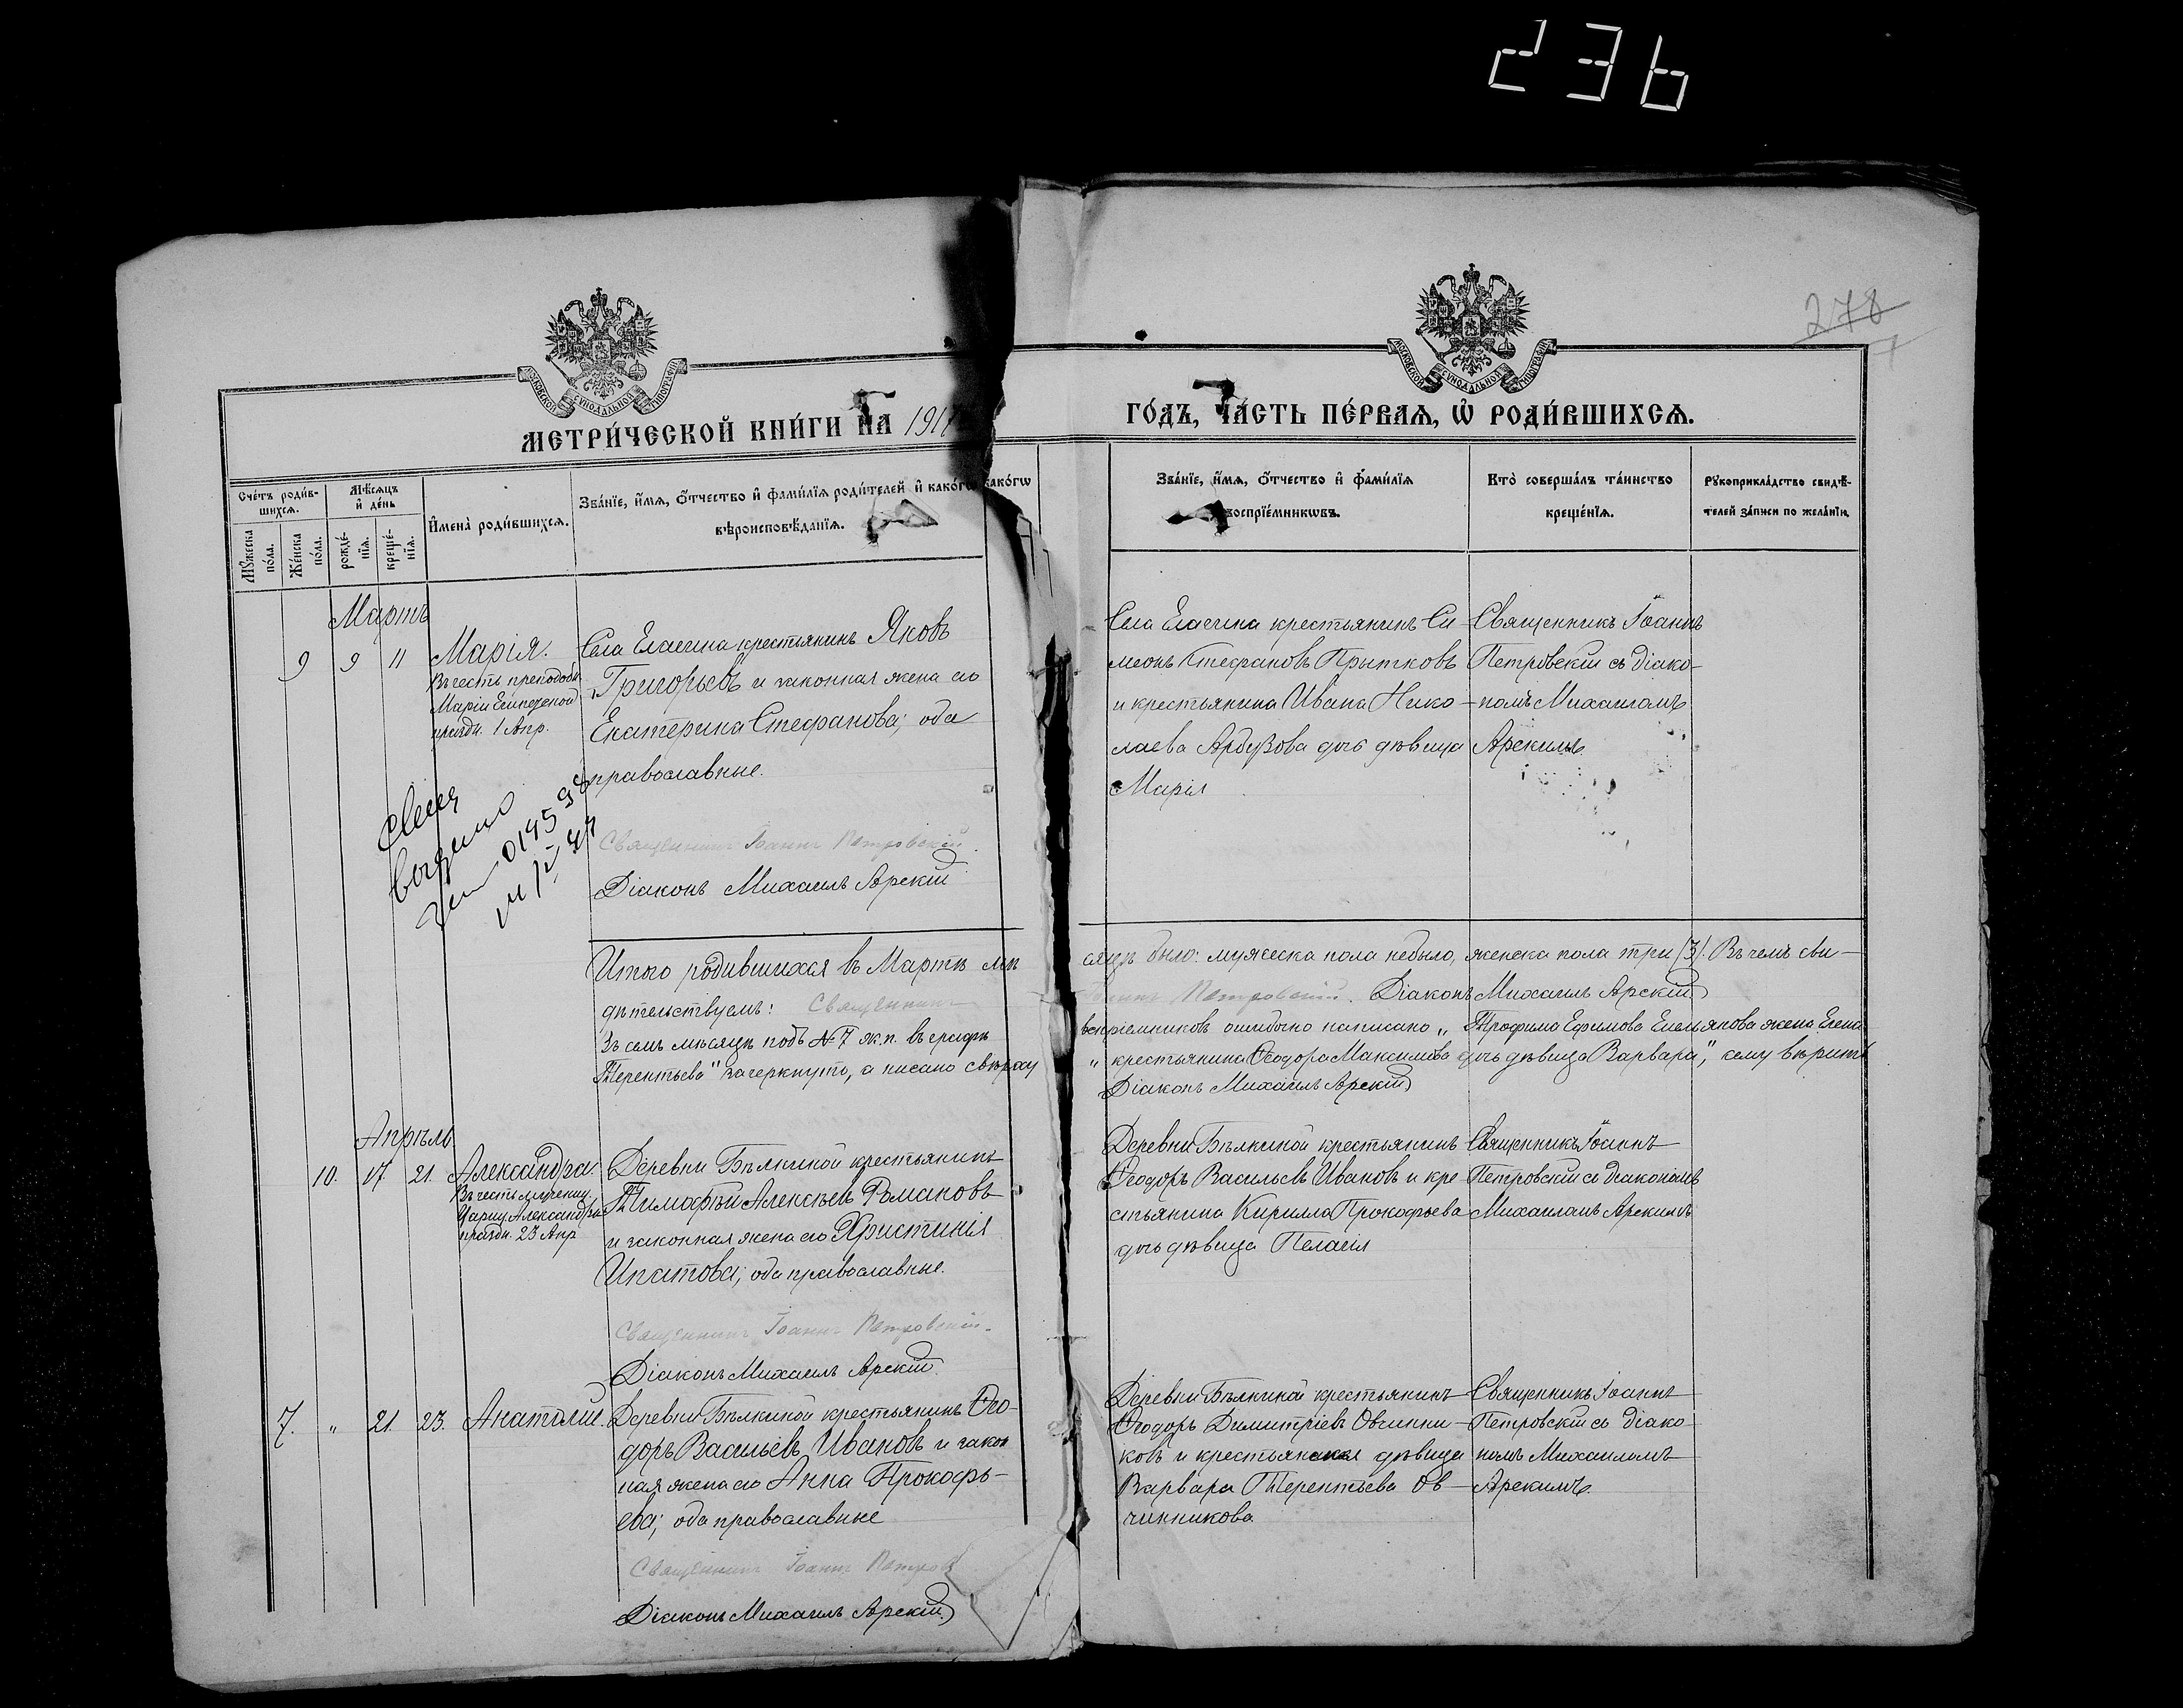 236
278
МОСКОВСКОЙ СУНОДАЛЬНОЙ ТИПОГРАФІИ
МОСКОВСКОЙ СУНОДАЛЬНОЙ ТИПОГРАФІИ
МЕТРИ́ЧЕСКОЙ КНИ́ГИ НА 1917
ГО́ДЪ, ЧА́СТЬ ПЕ́РВАЯ, Ѡ РОДИ́ВШИХСЯ.
Сче́тъ роди́в-
шихся.
Мѣ́сяцъ
и де́нь
Мꙋ́жеска
по́ла.
Же́нска
по́ла.
рожде́-
нїя.
креще́-
нїя.
Имена̀ роди́вшихся.
Зва́нїе, и́мя, ѻ́тчество и фами́лїя роди́телей и како́гѡ
како́гѡ
вѣроисповѣ́данїя.
Зва́нїе, и́мя, ѻ́тчество и фами́лїя
воспрїе́мникѡвъ.
Кто̀ соверша́лъ та́инство
креще́нїя.
Рꙋкоприкла́дство свидѣ́-
телей за́писи по жела́нїю.
Мартъ
9 9 11
Марія.
Въ честь преподобн.
Маріи Египетской
праздн. 1 Апр.
Села Елагина крестьянинъ Яковъ
Григорьевъ и законная жена его
Екатерина Стефанова; оба
православные.
Священникъ Іоаннъ Петровскій.
Діаконъ Михаилъ Арскій
Села Елагина крестьянинъ Си-
меонъ Стефановъ Прытковъ
и крестьянина Ивана Нико-
лаева Арбузова дочь дѣвица
Марія
Священникъ Іоаннъ
Петровскій съ діако-
номъ Михаиломъ
Арскимъ
014598
Итого родившихся въ Мартѣ мѣ
сяцѣ было: мужеска пола небыло, женска пола три (3). Въ чемъ сви-
дѣтельствуемъ: Священникъ
Іоаннъ Петровскій. Діаконъ Михаилъ Арскій
Въ семъ мѣсяцѣ подъ № 7 ж. п. въ графѣ
воспріемниковъ ошибочно написано „Трофима Ефимова Емельянова жена Елена
Терентьева" зачеркнуто, а писано сверху
„крестьянина Ѳеодора Максимова дочь дѣвица Варвара", сему вѣрить
Діаконъ Михаилъ Арскій
Апрѣль
10. 17. 21.
Александра.
Въ честь мучениц.
Цариц. Александры
праздн. 23 Апр
Деревни Бѣлкиной крестьянинъ
Тимоѳей Алексѣевъ Романовъ
и законная жена его Христинія
Ипатова; оба православные.
Священникъ Іоаннъ Петровскій.
Діаконъ Михаилъ Арскій
Деревни Бѣлкиной крестьянинъ
Ѳеодоръ Васильевъ Ивановъ и кре
стьянина Кирилла Прокофьева
дочь дѣвица Пелагія
Священникъ Іоаннъ
Петровскій съ діакономъ
Михаиломъ Арскимъ
7. „ 21. 23.
Анатолій.
Деревни Бѣлкиной крестьянинъ Ѳео-
доръ Васильевъ Ивановъ и закон
ная жена его Анна Прокофь-
ева; оба православные
Священникъ Іоаннъ Петров
Діаконъ Михаилъ Арскій
Деревни Бѣлкиной крестьянинъ
Ѳеодоръ Димитріевъ Овчинни-
ковъ и крестьянская дѣвица
Варвара Терентьева Ов-
чинникова
Священникъ Іоаннъ
Петровскій съ діако-
номъ Михаиломъ
Арскимъ.